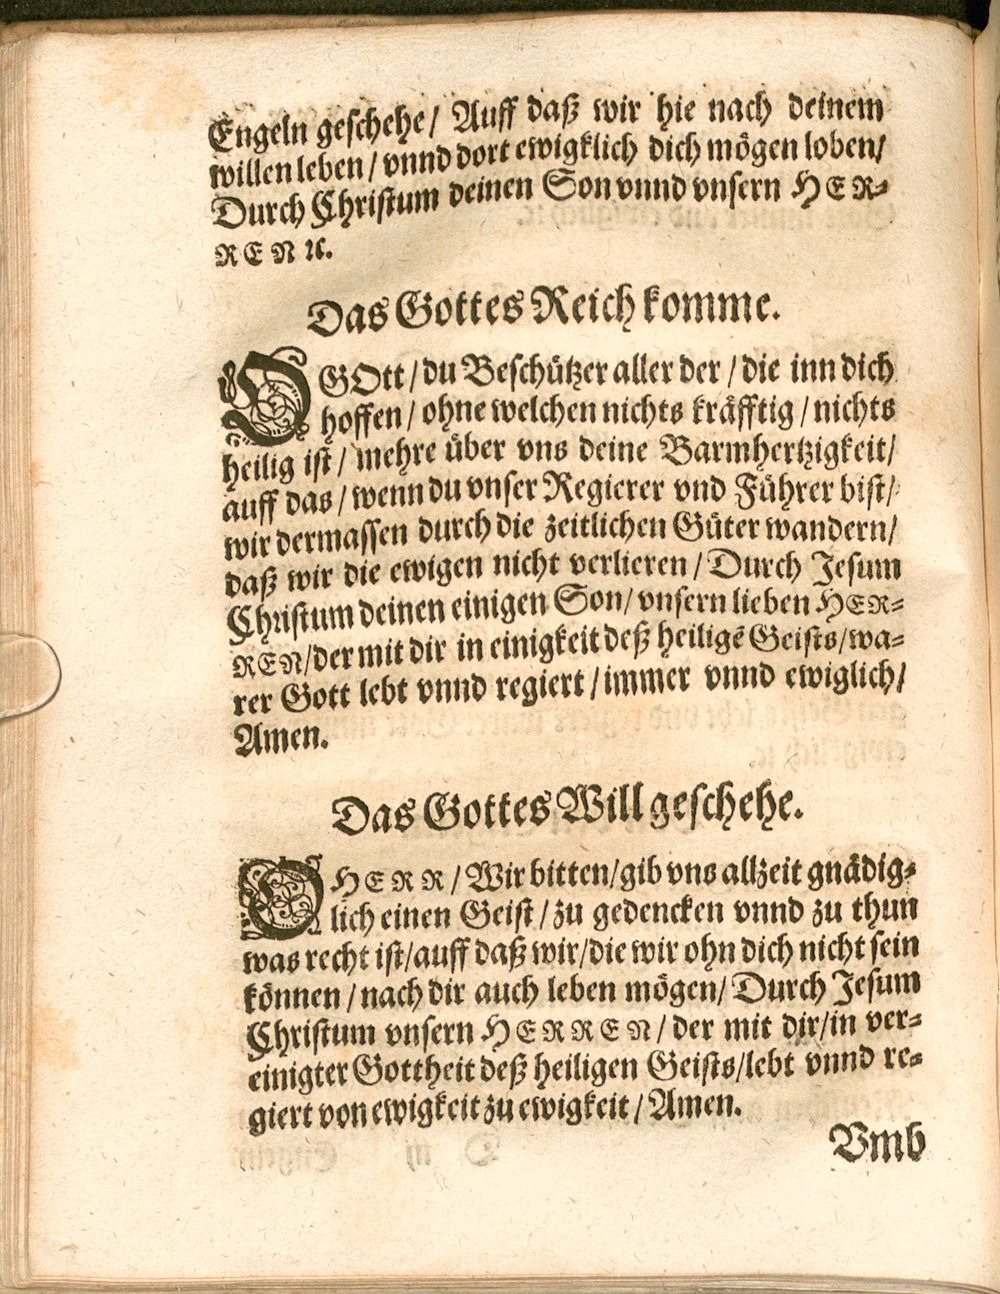 Engeln geschehe/ Auff daß wir hie nach deinem
willen leben/ vnnd dort ewigklich dich mögen loben/
Durch Christum deinen Son vnnd vnsern HER-
REN ꝛc.
Das Gottes Reich komme.
O GOtt/ du Beschützer aller der/ die inn dich
hoffen/ ohne welchen nichts kräfftig/ nichts
heilig ist/ mehre über vns deine Barmhertzigkeit/
auff das/ wenn du vnser Regierer vnd Führer bist/
wir dermassen durch die zeitlichen Güter wandern/
daß wir die ewigen nicht verlieren/ Durch Jesum
Christum deinen einigen Son/ vnsern lieben HER-
REN/ der mit dir in einigkeit deß heiligẽ Geists/ wa-
rer Gott lebt vnnd regiert/ immer vnnd ewiglich/
Amen.
Das Gottes Will geschehe.
O HERR/ Wir bitten/ gib vns allzeit gnädig-
lich einen Geist/ zu gedencken vnnd zu thun
was recht ist/ auff daß wir/ die wir ohn dich nicht sein
können/ nach dir auch leben mögen/ Durch Jesum
Christum vnsern HERREN/ der mit dir/ in ver-
einigter Gottheit deß heiligen Geists/ lebt vnnd re-
giert von ewigkeit zu ewigkeit/ Amen.
Vmb